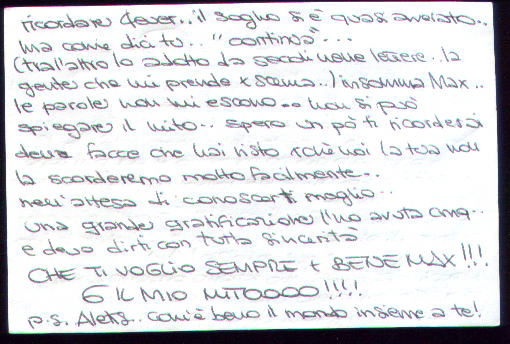 ricordare 4ever.. il sogno si è quasi avverato..
ma come dici tu.. "continua"...
(tra l'altro lo adotto da secoli nelle lettere.. la
gente che mi prende x scema..) insomma Max..
le parole non mi escono... non si può
spiegare il mito.. spero un pò ti ricorderai
delle facce che hai visto xchè noi la tua non
la scorderemo molto facilmente..
nell'attesa di conoscerti meglio..
una grande gratificazione l'ho avuta cmq..
e devo dirti con tutta sincerità
CHE TI VOGLIO SEMPRE + BENE MAX!!!
6 IL MIO MITOOOO!!!!
p.s. Com'è bello il mondo insieme a te!